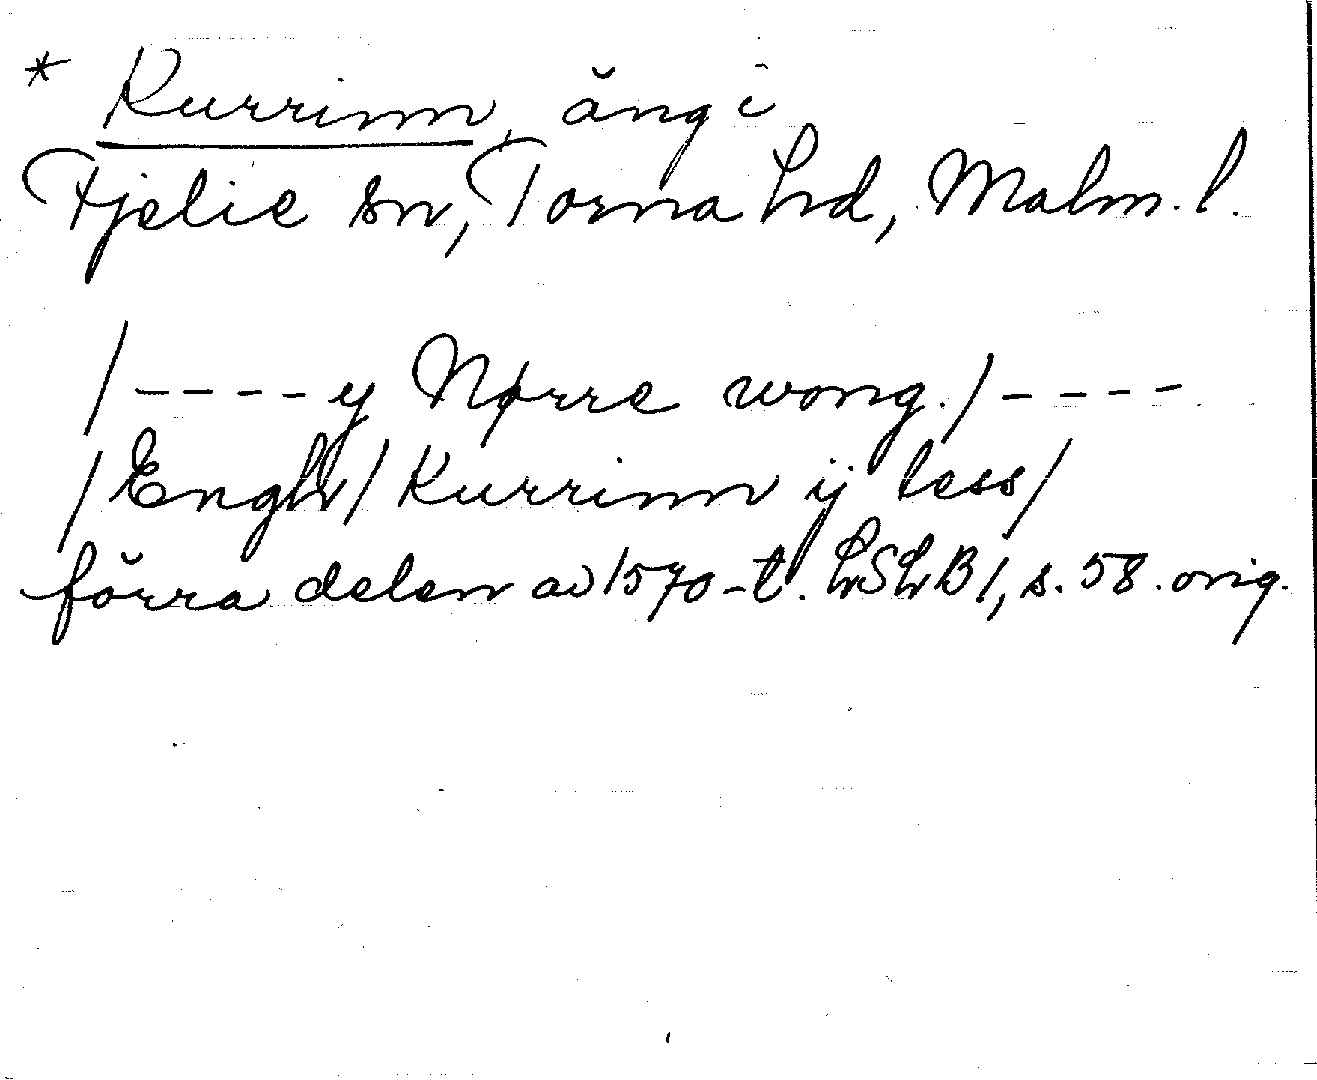 * Kurrinn, äng i
Fjelie sn, Torna hd, Malm. l.
/----y Nørre wong./----
/Engh/ Kurrinn ij less/
förra delen av 1570-t. LSLB1, s. 58. orig.